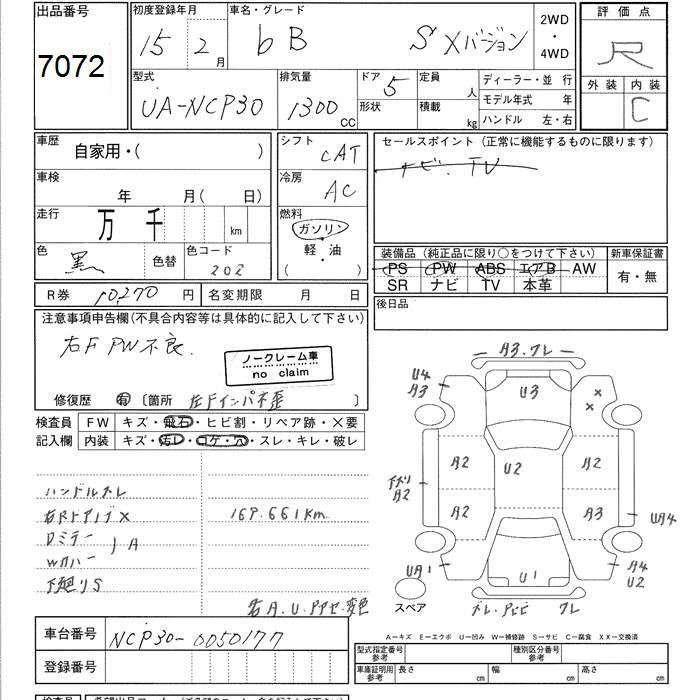 出品番号
7072
初度登録年月
15年2月
車名・グレード
bB S Xバージョン
2WD
・
4WD
評価点
R
外装 内装
C
型式
UA-NCP30
排気量
1300 CC
ドア 5
形状
定員 人
積載 kg
ディーラー・並行
モデル年式 年
ハンドル 左・右
車歴
自家用・( )
車検
年 月( 日)
走行
万 千 km
色
黒
色替
色コード
202
シフト
CAT
冷房
AC
燃料
ガソリン
軽・油
( )
セールスポイント (正常に機能するものに限ります)
ナビ・TV
装備品 (純正品に限り○をつけて下さい)
PS PW ABS エアB AW
SR ナビ TV 本革
新車保証書
有・無
後日品
R券 10,270 円
名変期限 月 日
注意事項申告欄(不具合内容等は具体的に記入して下さい)
右F PW不良.
ノークレーム車
no claim
修復歴 有 〔箇所 左Fインパネ歪 〕
検査員
記入欄
FW キズ・飛石・ヒビ割・リペア跡・×要
内装 キズ・汚レ・コゲ・穴・スレ・キレ・破レ
ハンドルスレ
右RドアノブX
Dミラー
Wカバー
A
下廻りS
169.661Km
A3.ワレ
U4
A3
U3
×
×
A2
U2
A2
A2
A2
A3
WA4
UA1
U1
A4
U2
スペア
ワレ
A-キズ E-エクボ U-凹み W-補修跡 S-サビ C-腐食 XX-交換済
車台番号
NCP30-0050177
登録番号
型式指定番号
参考
種別区分番号
参考
車庫証明用
参考
長さ cm
幅 cm
高さ cm
検査員